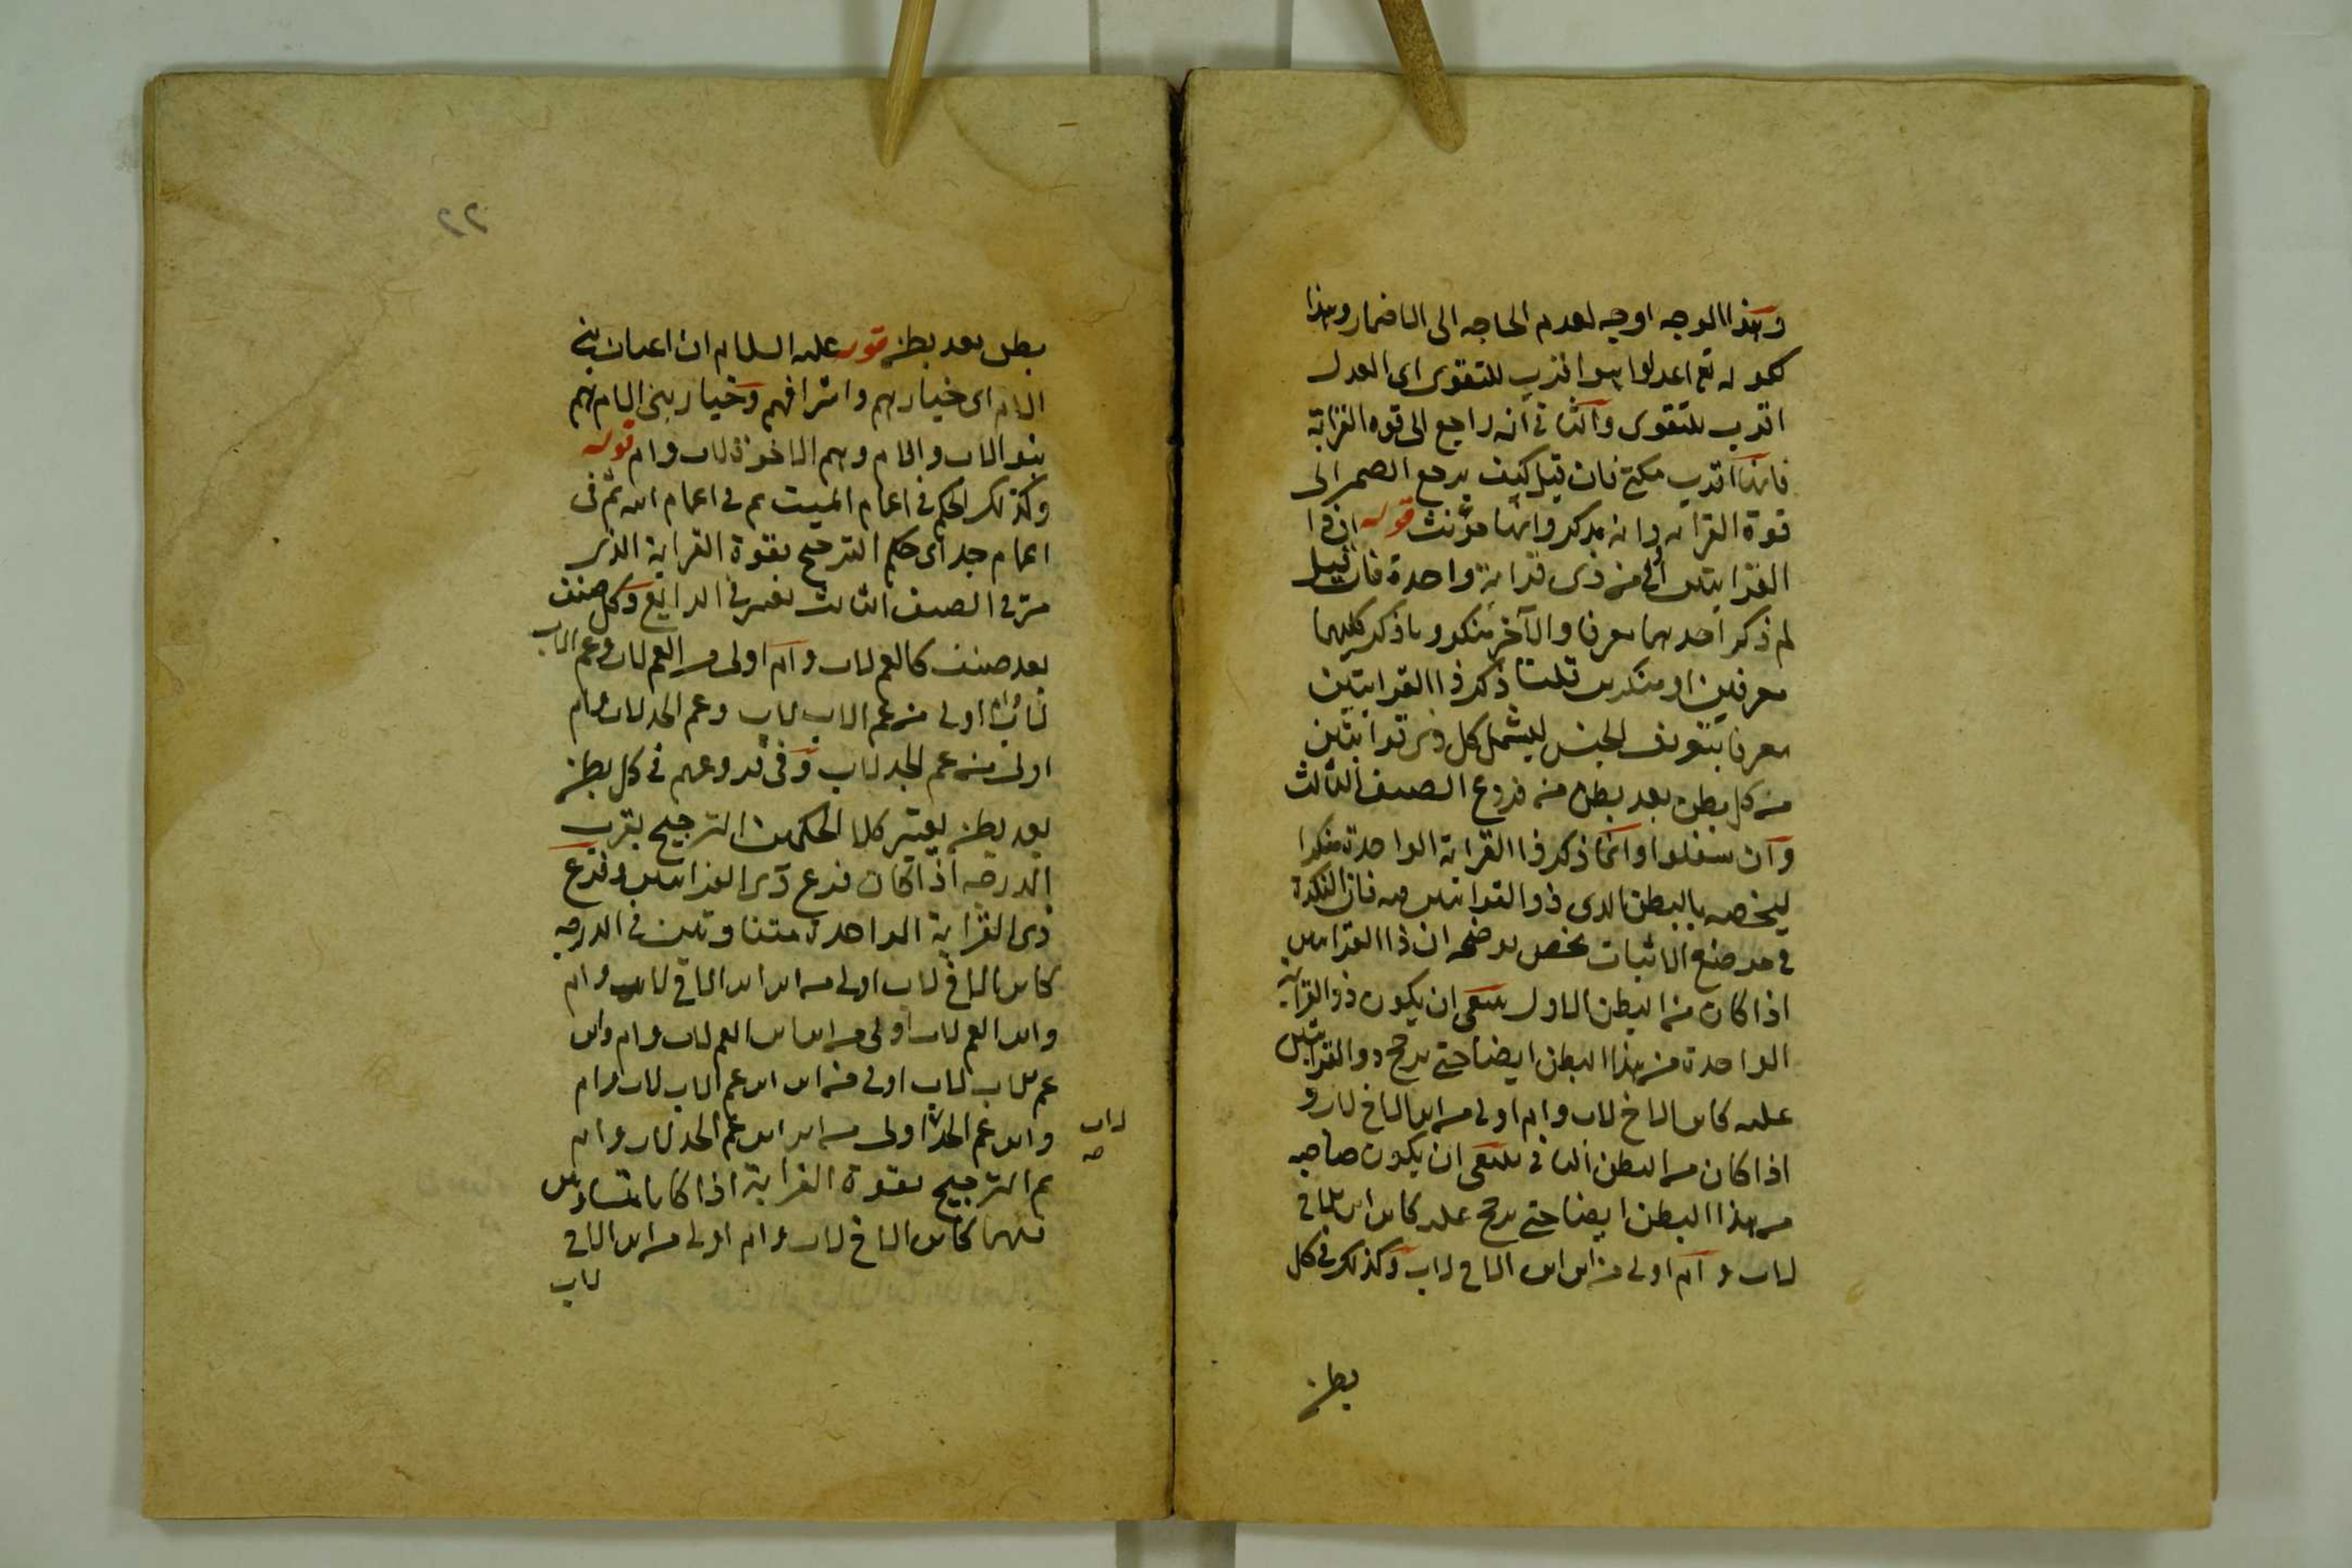 وهذا الوجه اوجه لعدم الحاجه الى الاضمار وهذا
كقوله تع اعدلوا هو اقرب للتقوى اى العدل
اقرب للتقوى والثانى انه راجع الى قوه القرابة
فانها اقرب فان قيل كيف يرجع الضمير الى
قوة القرابه وانه مذكر وانها مؤنث قوله ان ذا
القرابتين اولى من ذى قرابة واحدة فان قيل
لم ذكر احدهما معرفا والآخر منكرو ما ذكر كليهما
معرفين او منكرين قلنا ذكر ذا القرابتين
معرفا بتعريف الجنس ليشمل كل ذى قرابتين
من كل بطن بعد بطن من فروع الصنف الثالث
وان سفلوا وانما ذكر ذا القرابة الواحدة منكرا
ليخصه بالبطن الذى ذو القرابتين منه فان النكرة
فى موضع الاثبات تخص توضيحه ان ذا القرابتين
اذا كان من البطن الاول ينبغى ان يكون ذو القرابة
الواحدة من هذا البطن ايضا حتى يرجح ذو القرابتين
عليه كابن الاخ لاب وام اولى من ابن الاخ لاب و
اذا كان من البطن الثانى ينبغى ان يكون صاحبه
من هذا البطن ايضا حتى يرجح عليه كابن ابن الاخ
لاب وام اولى من ابن ابن الاخ لاب وكذلك فى كل
بطن
٢٢
بطن بعد بطن قوله عليه السلام ان اعيان بنى
الام اى خيارهم واشرافهم وخيار بنى الام هم
بنو الاب والام وهم الاخوة لاب وام قوله
وكذلك الحكم فى اعمام الميت ثم فى اعمام ابيه ثم فى
اعمام جد اى حكم الترجيح بقوة القرابة الذى
مرّ فى الصنف الثالث يعتبر فى الرابع وكل صنف
بعد صنف كالعم لاب وام اولى من العم لاب وعم الاب
لاب وام اولى من عم الاب لاب وعم الجد لاب وام
اولى من عم الجد لاب وفى فروعهم فى كل بطن
بعد بطن يعتبر كلا الحكمين الترجيح بقرب
الدرجه اذا كان فرع ذى القرابتين وفرع
ذى القرابة الواحدة متفاوتين فى الدرجه
كابن الاخ لاب اولى من ابن ابن الاخ لاب وام
وابن العم لاب اولى من ابن ابن العم لاب وام وابن
عم الاب لاب اولى من ابن ابن عم الاب لاب وام
وابن عم الجد اولى من ابن ابن عم الجد لاب وام
لاب
صح
ثم الترجيح بقوة القرابة اذا كانا متساويين
فيهما كابن الاخ لاب وام اولى من ابن الاخ
لاب